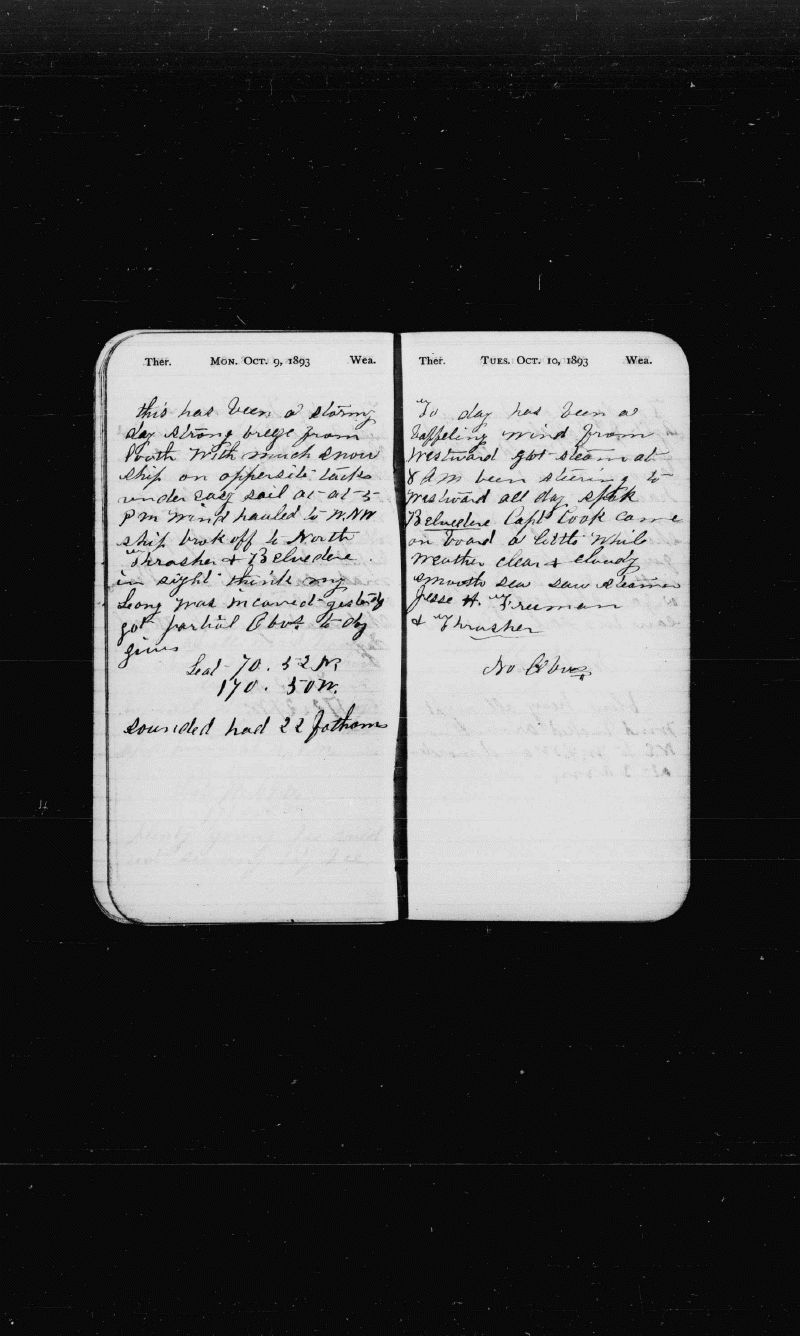 Ther. MON. OCT. 9, 1893 Wea.
this has been a stormy
day strong breze from
South With much snow
ship on oppersite tacks
under easy sail at at 5
P M Wind hauled to W.NW
ship brok off to North
Thrasher & Belvedere
in sight think my
Long was incored yesterdy
got partial Obvs to dy
gives
Lat 70. 52 N
170. 50 W.
sounded had 22 fathoms
Ther. TUES. OCT. 10, 1893 Wea.
To day has been a
baffeling wind from
Westward got steam at
8 A M been steering to
Westward all day spok
Belvedere Capt Cook came
on board a little while
Weather clear & cloudy
smooth sea saw steamer
Jesse H. Freeman
& Thrasher
No Obvs